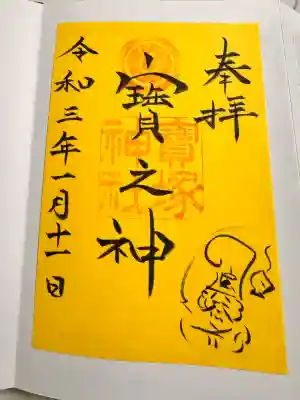 奉拝
寶之神
寶塚
神社
令和三年一月十一日